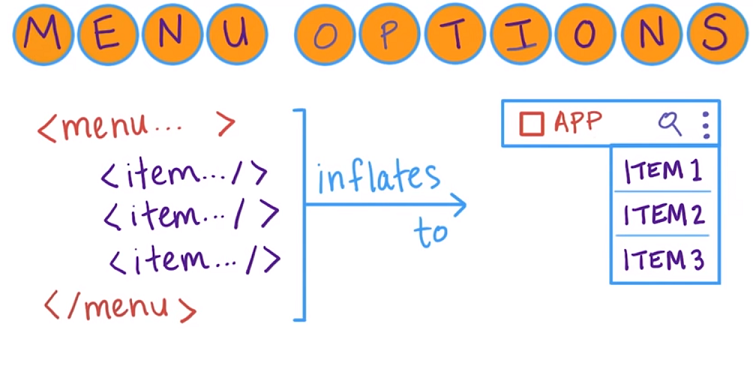 MENU OPTIONS
<menu... >
<item.../>
<item.../>
<item.../>
</menu>
inflates
to
APP
ITEM 1
ITEM 2
ITEM 3